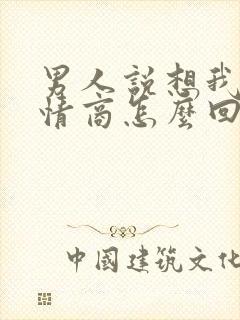 男人説想我
情商怎麼回
中國建筑文化